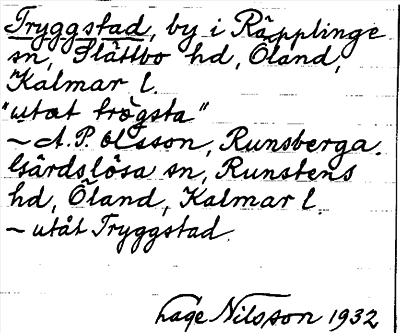 Tryggstad, by i Räpplinge
sn, Slättbo hd, Öland,
Kalmar l.
"utat trögsta"
~ A. P. Olsson, Runsberga.
Gärdslösa sn, Runstens
hd, Öland, Kalmar l.
~ utåt Tryggstad.
Lage Nilsson 1932